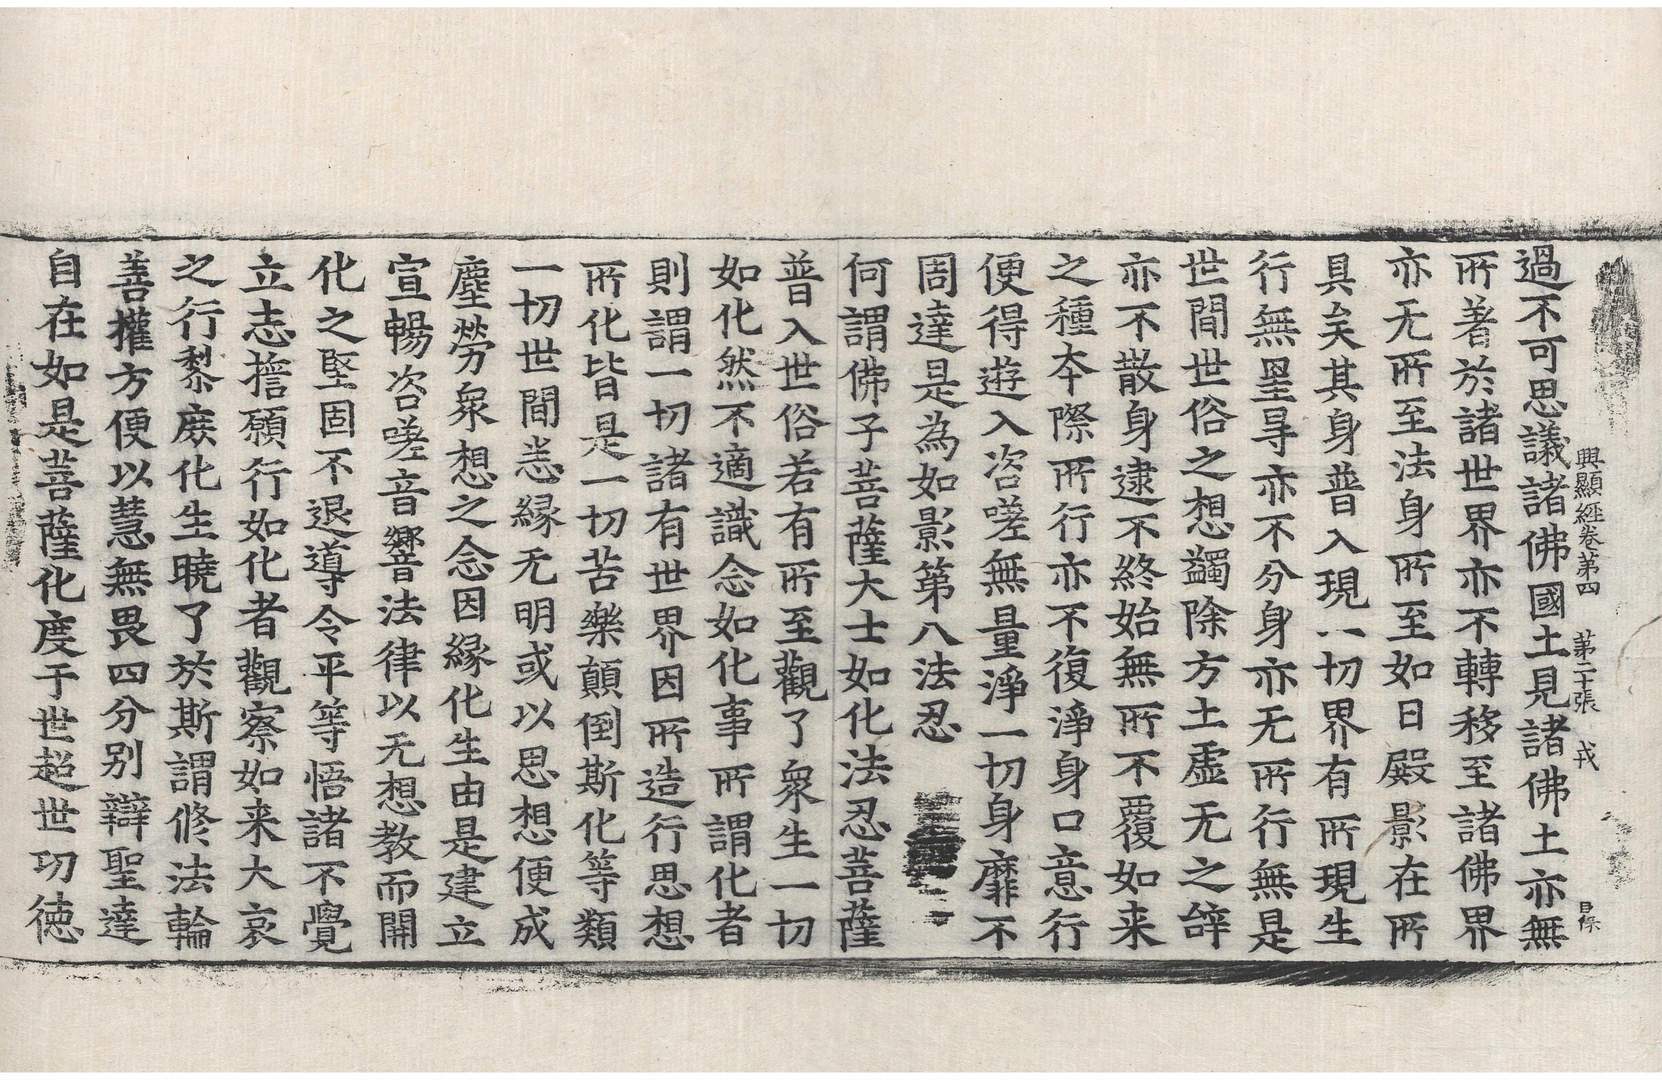 興顯經卷第四　第二十張　戎
過不可思議諸佛國土見諸佛土亦無
所著於諸世界亦不轉移至諸佛界
亦无所至法身所至如日殿影在所
具矣其身普入現一切界有所現生
行無罣㝵亦不分身亦无所行無是
世間世俗之想蠲除方土虛无之辞
亦不散身逮不終始無所不覆如来
之種本際所行亦不復淨身口意行
便得遊入咨嗟無量淨一切身靡不
周達是為如影第八法忍
何謂佛子菩薩大士如化法忍菩薩
普入世俗若有所至觀了衆生一切
如化然不適識念如化事所謂化者
則謂一切諸有世界因所造行思想
所化皆是一切苦樂顛倒斯化等類
一切世間恙緣无明或以思想便成
塵勞衆想之念因緣化生由是建立
宣暢咨嗟音響法律以无想教而開
化之堅固不退導令平等悟諸不覺
立志擔願行如化者觀察如来大哀
之行黎庶化生曉了於斯謂修法輪
善權方便以慧無畏四分别辯聖達
自在如是菩薩化度于世超世功德